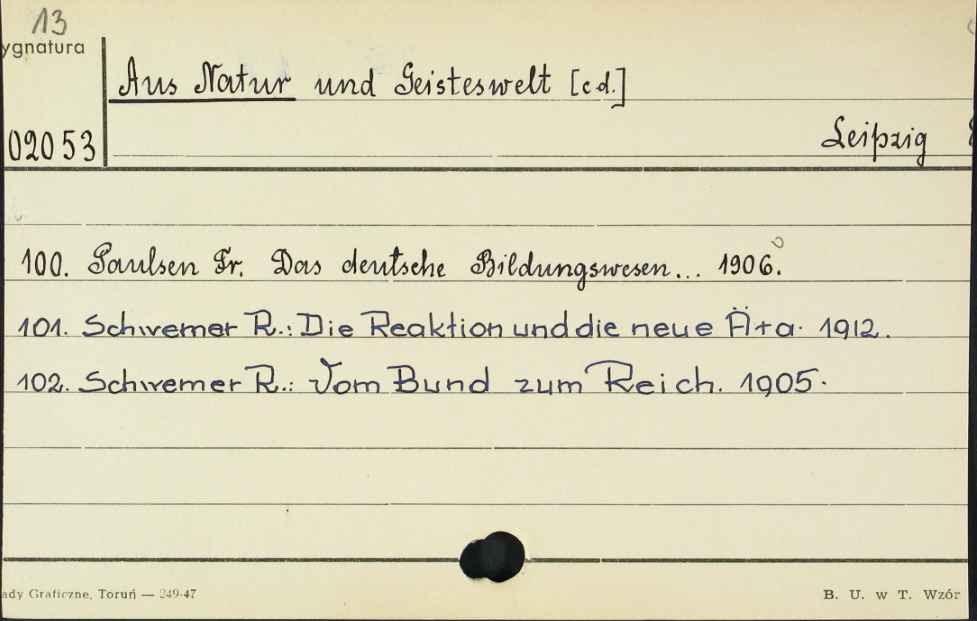 13
ygnatura
Aus Natur und Geisteswelt [cd.]
02053
Leipzig
100. Paulsen Fr. Das deutsche Bildungswesen... 1906.
101. Schwemer R.: Die Reaktion und die neue Ära. 1912.
102. Schwemer R.: Vom Bund zum Reich. 1905.
ady Graficzne, Toruń — 249-47
B. U. w T. Wzór